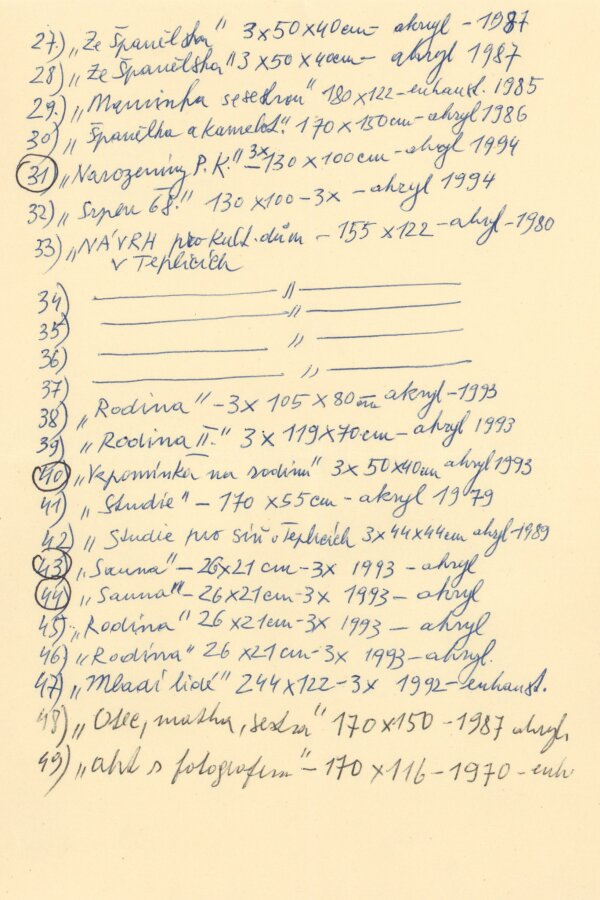 27) „Ze Španělska" 3x50x40cm - akryl - 1987
28) „Ze Španělska" 3x50x40cm - akryl 1987
29) „Maminka se sestrou" 180x122 - enkaust. 1985
30) „Španělka a kamelot." 170x150cm - akryl 1986
31) „Narozeniny P.K." 3x - 130x100cm - akryl 1994
32) „Srpen 68." 130x100 - 3x - akryl 1994
33) „NÁVRH pro kult. dům - 155x122 - akryl - 1980
v Teplicích
34) ——— „ ———
35) ——— „ ———
36) ——— „ ———
37) ——— „ ———
38) „Rodina" - 3x 105x80cm akryl - 1993
39) „Rodina II." 3x119x70cm - akryl 1993
40) „Vzpomínka na rodinu" 3x50x40cm akryl 1993
41) „Studie" - 170x55cm - akryl 1979
42) „Studie pro síň v Teplicích 3x44x44cm akryl - 1989
43) „Sauna" - 26x21cm - 3x 1993 - akryl
44) „Sauna" - 26x21cm - 3x 1993 - akryl
45) „Rodina" 26x21cm - 3x 1993 - akryl
46) „Rodina" 26x21cm - 3x 1993 - akryl.
47) „Mladí lidé" 244x122 - 3x 1992 - enkaust.
48) „Otec, matka, sestra" 170x150 - 1987 akryl
49) „akt s fotografem" - 170x116 - 1970 - enk